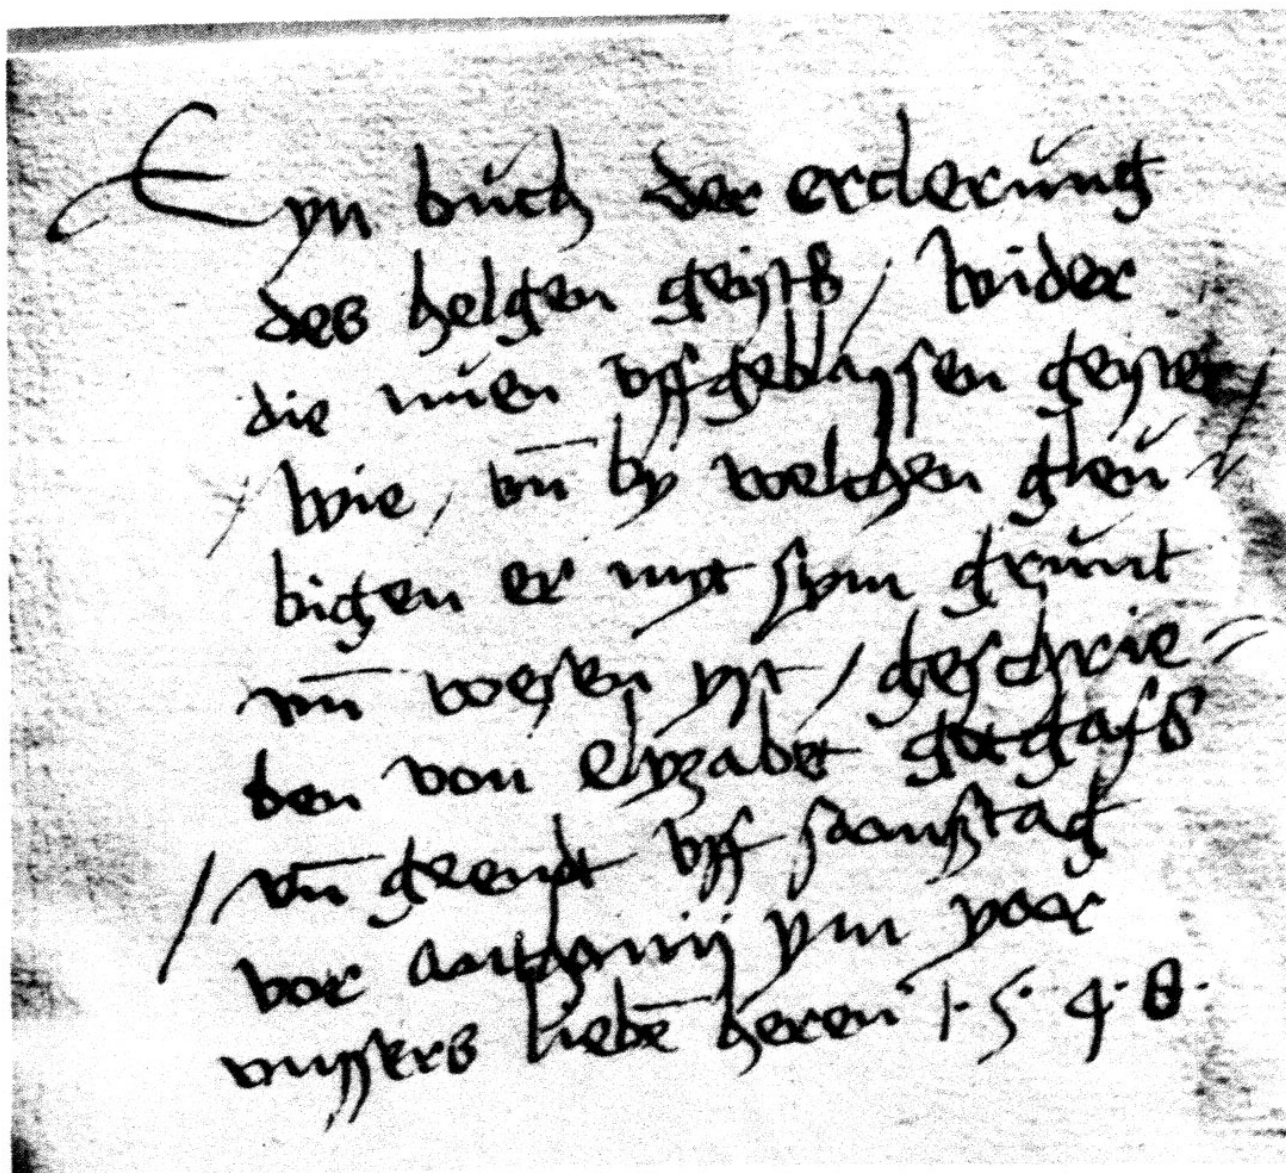 Eyn bůch der erclerůng
des helgen geystß / wider
die nůen vffgeblassen geyster /
/ wie / vn̄ by welchen gleů //
bigen er myt sym grůnt
vn̄ wesen yst / geschrie =
ben von elyzabet gotgafß
/ vn̄ geendt vff sanßtag
vor anthonij ym yaar
vnssers liebē heren 1·5·4·8·